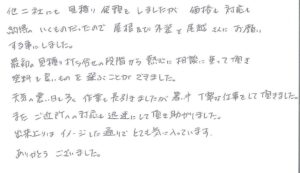 他二社にも見積り依頼をしましたが 価格も対応も
納得いくものだったので 屋根および外壁と尾越さんにお願い
する事にしました。
最初の見積り打ち合せの段階から熱心に相談に乗って頂き
塗料も良いものを選ぶことができました。
天気の悪い日も多く作業も長引きましたが 最後まで丁寧な仕事をして頂きました。
また ご近所への対応も迅速にして頂き助かりました。
出来上りはイメージした通りで とても気に入っています。
ありがとうございました。